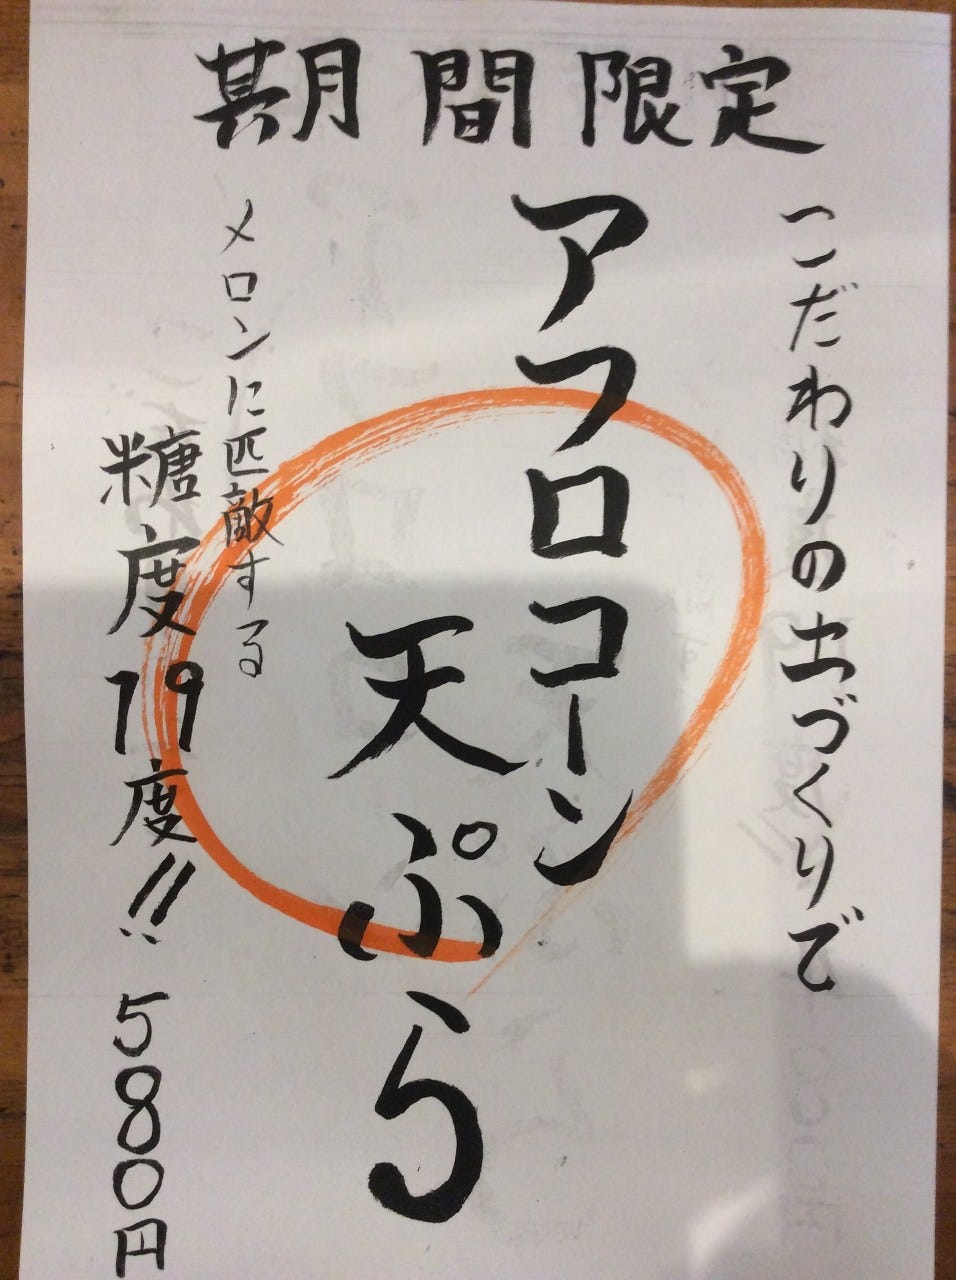 期間限定
こだわりの土づくりで
アフロコーン
天ぷら
メロンに匹敵する
糖度19度!! 580円